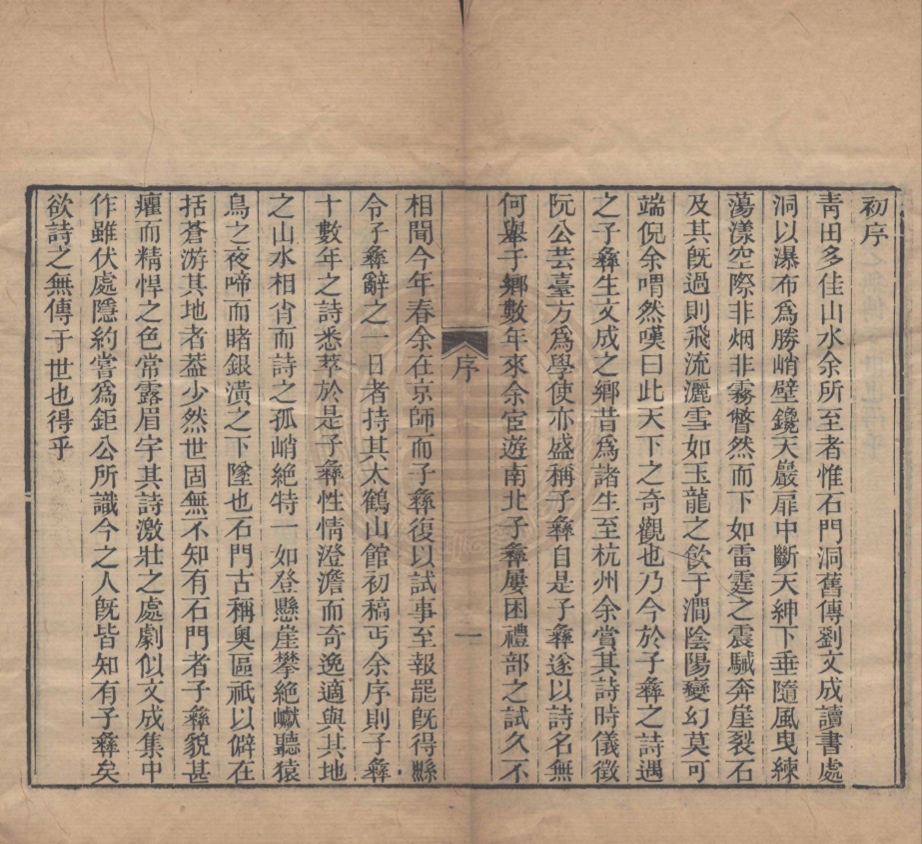 初序
青田多佳山水余所至者惟石門洞舊傳劉文成讀書處
洞以瀑布爲勝峭壁鑱天巖扉中斷天紳下垂隨風曳練
蕩漾空際非烟非霧瞥然而下如雷霆之震駴奔崖裂石
及其旣過則飛流灑雪如玉龍之飮于澗陰陽變幻莫可
端倪余喟然嘆曰此天下之奇觀也乃今於子彝之詩遇
之子彝生文成之鄉昔爲諸生至杭州余賞其詩時儀徵
阮公芸臺方爲學使亦盛稱子彝自是子彝遂以詩名無
何舉于鄉數年來余宦遊南北子彝屢困禮部之試久不
序
一
相聞今年春余在京師而子彝復以試事至報罷旣得縣
令子彝辭之一日者持其太鶴山館初稿丐余序則子彝
十數年之詩悉萃於是子彝性情澄澹而奇逸適與其地
之山水相肖而詩之孤峭絶特一如登懸崖攀絶巘聽猿
鳥之夜啼而睹銀潢之下墜也石門古稱奧區祇以僻在
括蒼游其地者葢少然世固無不知有石門者子彝貌甚
癯而精悍之色常露眉宇其詩激壯之處劇似文成集中
作雖伏處隱約嘗爲鉅公所識今之人旣皆知有子彝矣
欲詩之無傳于世也得乎